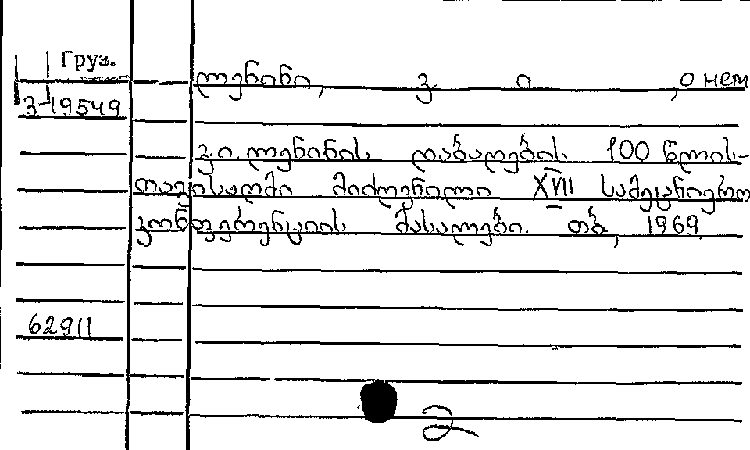 Груз.
ლენინი, ვ. ი. , о нем
3-19549
ვ. ი. ლენინის დაბადების 100 წლის-
თავისადმი მიძღვნილი XVII სამეცნიერო
კონფერენციის მასალები. თბ., 1969.
62911